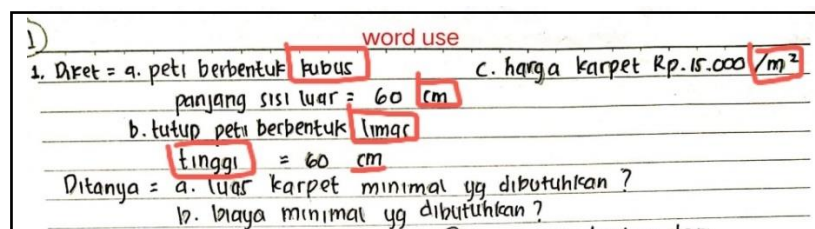 1)
word use
1. Diket = a. peti berbentuk kubus c. harga karpet Rp.15.000 /m²
panjang sisi luar = 60 cm
b. tutup peti berbentuk limas
tinggi = 60 cm
Ditanya = a. luas karpet minimal yg dibutuhkan ?
b. biaya minimal yg dibutuhkan ?